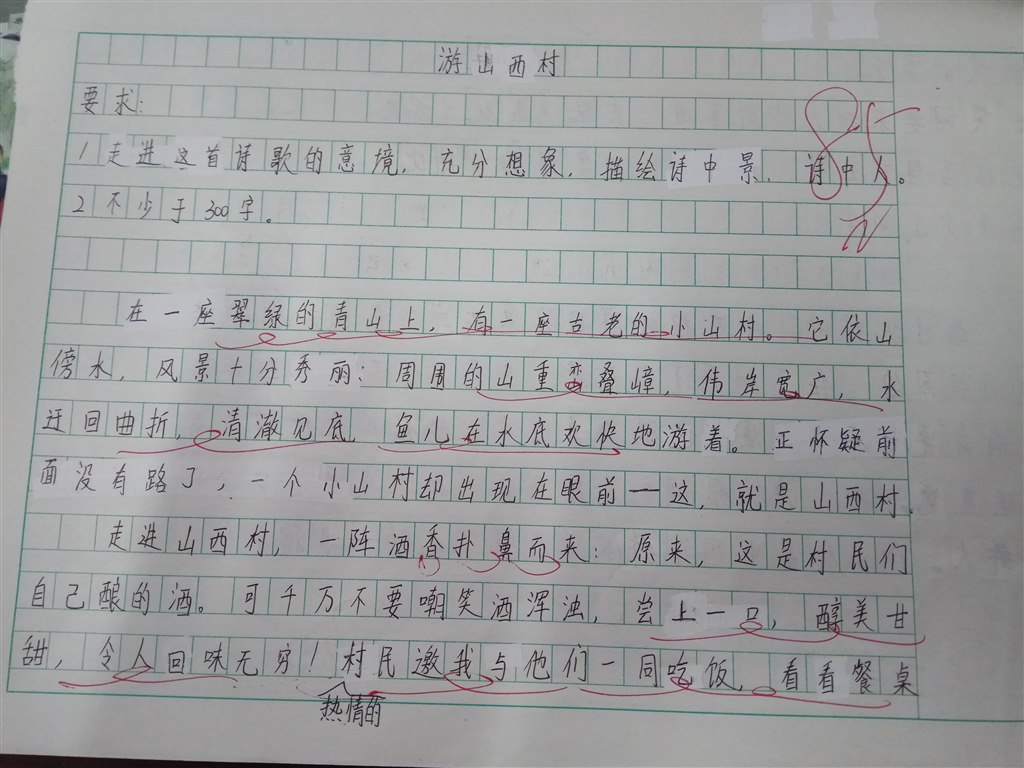 游山西村
要求:
1走进这首诗歌的意境，充分想象，描绘诗中景、诗中人。
2不少于300字。
85
在一座翠绿的青山上，有一座古老的小山村。它依山
傍水，风景十分秀丽：周围的山重峦叠嶂，伟岸宽广，水
迂回曲折，清澈见底，鱼儿在水底欢快地游着。正怀疑前
面没有路了，一个小山村却出现在眼前——这，就是山西村。
走进山西村，一阵酒香扑鼻而来：原来，这是村民们
自己酿的酒。可千万不要嘲笑酒浑浊，尝上一口，醇美甘
甜，令人回味无穷！村民邀我与他们一同吃饭，看看餐桌
热情的